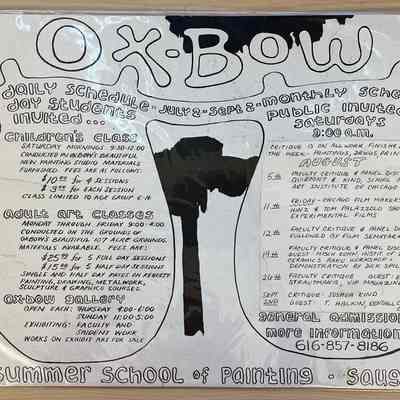 OX-BOW
daily schedule
day students
invited...
JULY 2 - SEPT 2
monthly sche
public invited
saturdays
9:00 a.m.
children's class
SATURDAY MORNINGS 9:30-12:00
CONDUCTED IN OXBOW'S BEAUTIFUL
NEW PAINTING STUDIO MATERIALS
FURNISHED. FEES ARE AS FOLLOWS:
FOR 4 SESSIONS
FOR EACH SESSION
CLASS LIMITED TO AGE GROUP 6-16
adult art classes
MONDAY THROUGH FRIDAY 9:00-4:00
CONDUCTED ON THE GROUNDS OF
OXBOW'S BEAUTIFUL 107 ACRE GROUNDS.
MATERIALS AVAILABLE. FEES ARE:
$25.00 FOR 5 FULL DAY SESSIONS
$15.00 FOR 5 HALF DAY SESSIONS
SINGLE AND HALF DAY RATES ON REQUEST
PAINTING, DRAWING, METALWORK,
SCULPTURE & GRAPHICS COURSES.
ox-bow gallery
OPEN EACH: THURSDAY 4:00-6:00
SUNDAY 11:00-5:00
EXHIBITING: FACULTY AND
STUDENT WORK
WORKS ON EXHIBIT ARE FOR SALE
CRITIQUE IS ON ALL WORK FINISHE
THE WEEK: PAINTINGS, DRWGS, PRINT
AUGUST
5th FACULTY CRITIQUE & PANEL DISC
ART INSTITUTE OF CHICAGO
11th FRIDAY - CHICAGO FILM MAKERS
TOM PALAZZOLO SHOW
EXPERIMENTAL FILMS
12th FACULTY CRITIQUE & PANEL D
FOLLOWED BY FILM SEMINAR
19th FACULTY CRITIQUE & PANEL DISC
CERAMICS RAKU WORKSHOP &
DEMONSTRATION BY DICK
26th FACULTY CRITIQUE & GUEST:
SEPT 2nd CRITIQUE: JOSHUA KIND
GUEST: T. HALKIN,
general admission
more information
616-857-8186
summer school of painting • saug